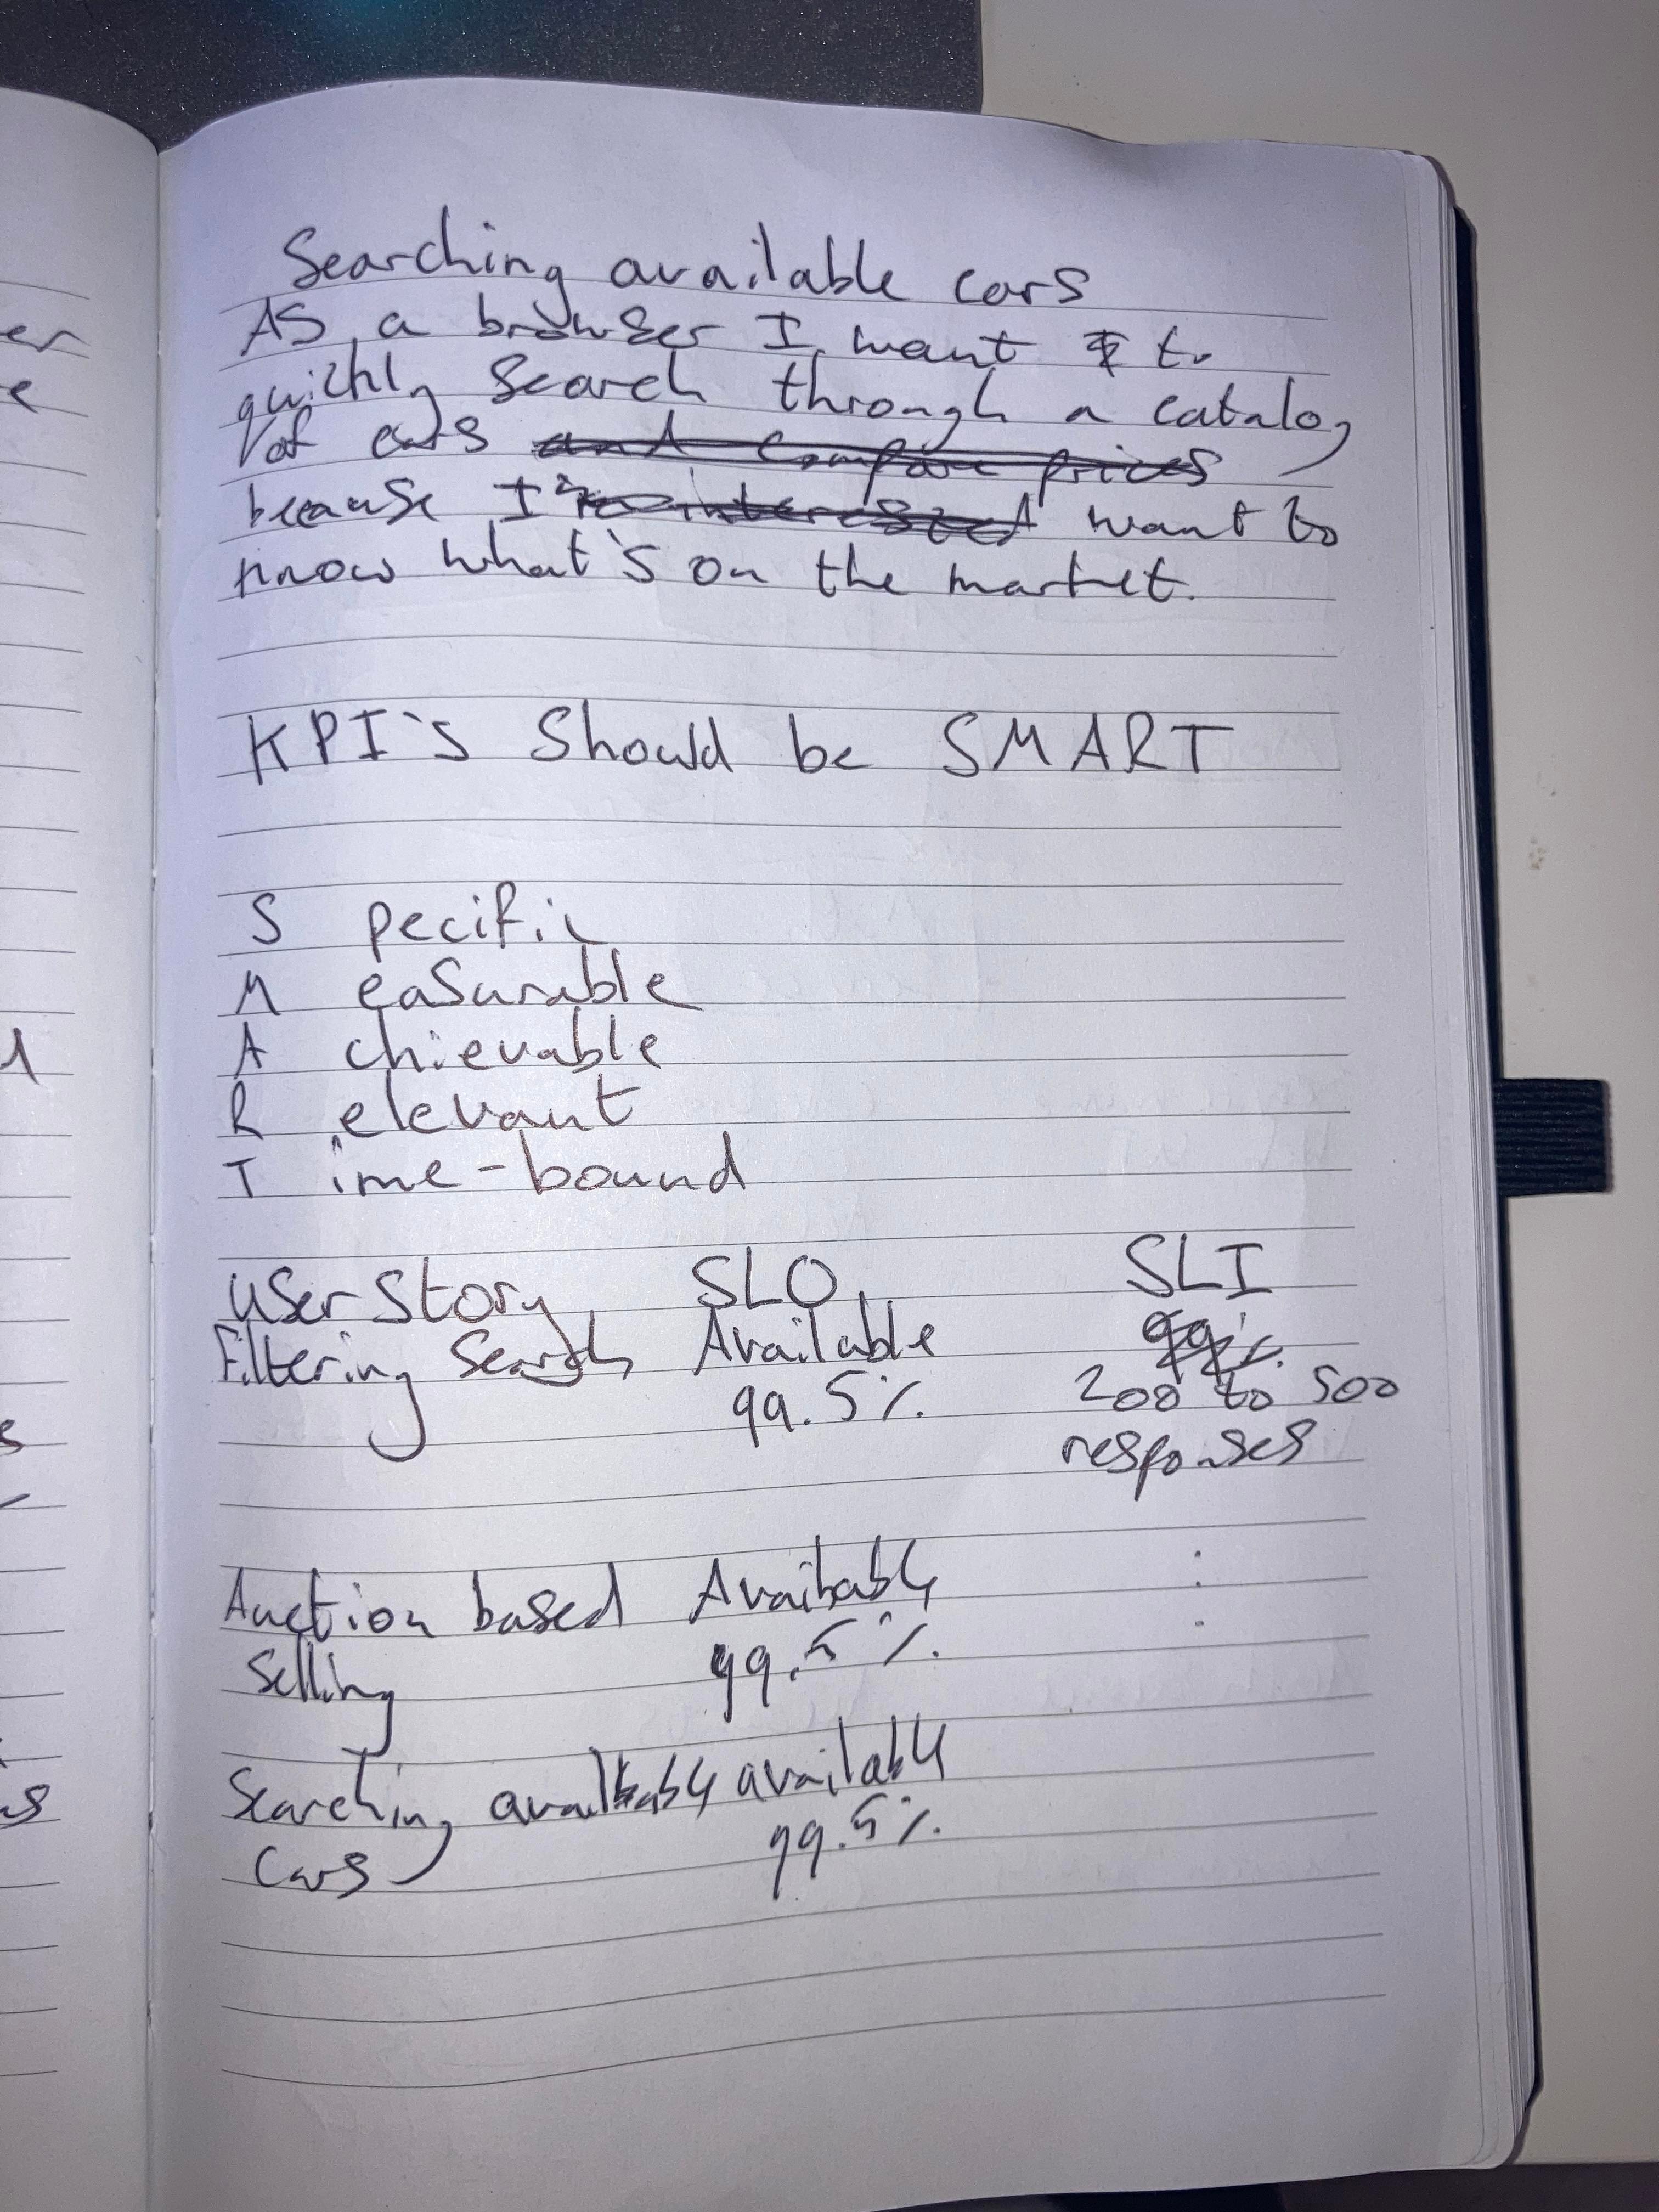 Searching available cars
AS a browser I want to
quickly Search through a catalog
of cars and compare prices
because I'm interested want to
know what's on the market.
KPI's Should be SMART
S pecific
M easurable
A chievable
R elevant
T ime-bound
User Story SLO SLI
Filtering Search Available 99%
99.5% 200 to 500
responses
Auction based Available :
Selling 99.5% .
Searching available available
Cars 99.5%
er
e
s